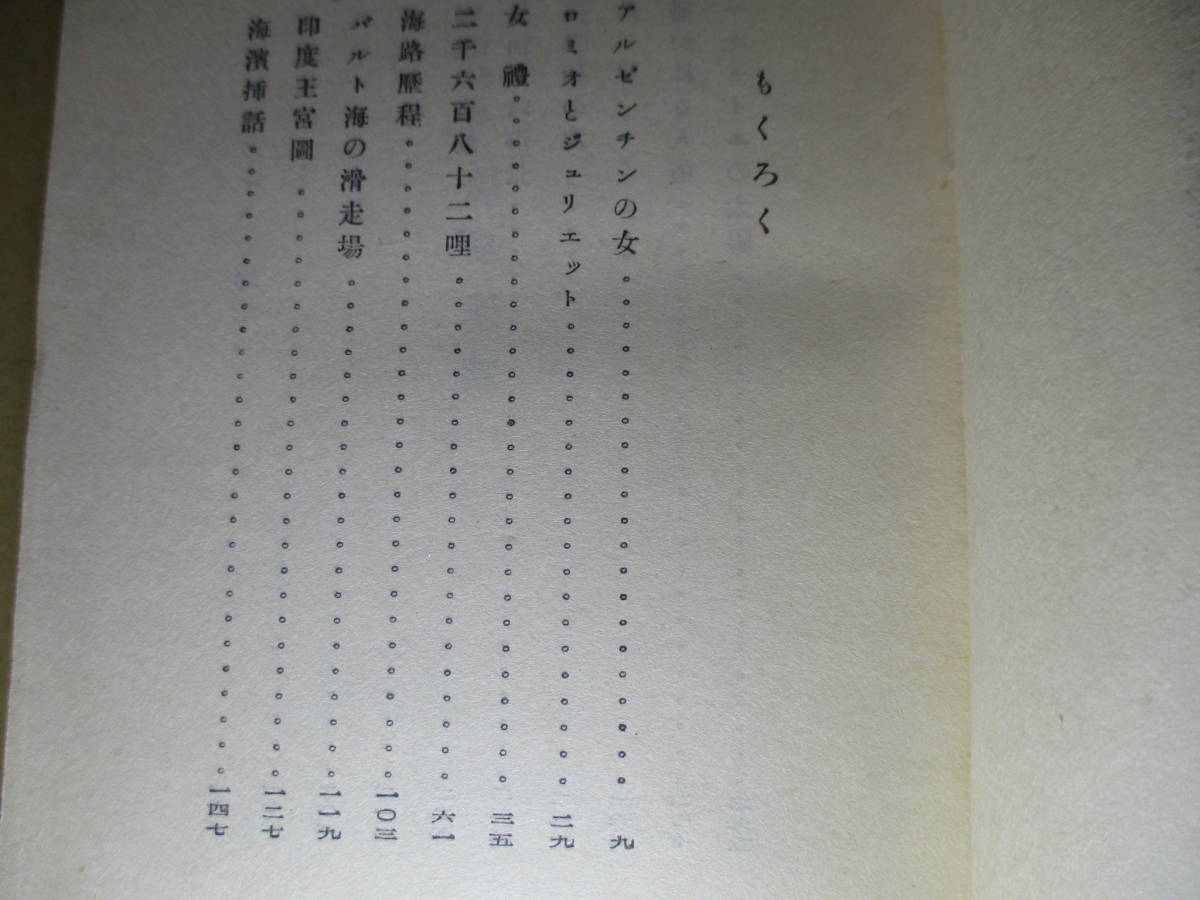 もくろく
アルゼンチンの女。。。。。。。。。。。。。。。。。。。。。。九
ロミオとジュリエット。。。。。。。。。。。。。。。。。。。。二九
女禮。。。。。。。。。。。。。。。。。。。。。。。。。。。。。三五
二千六百八十二哩。。。。。。。。。。。。。。。。。。。。。。六一
海路歷程。。。。。。。。。。。。。。。。。。。。。。。。。。。一〇三
バルト海の滑走場。。。。。。。。。。。。。。。。。。。。。。一一九
印度王宮圖。。。。。。。。。。。。。。。。。。。。。。。。。。一二七
海濱挿話。。。。。。。。。。。。。。。。。。。。。。。。。。。一四七